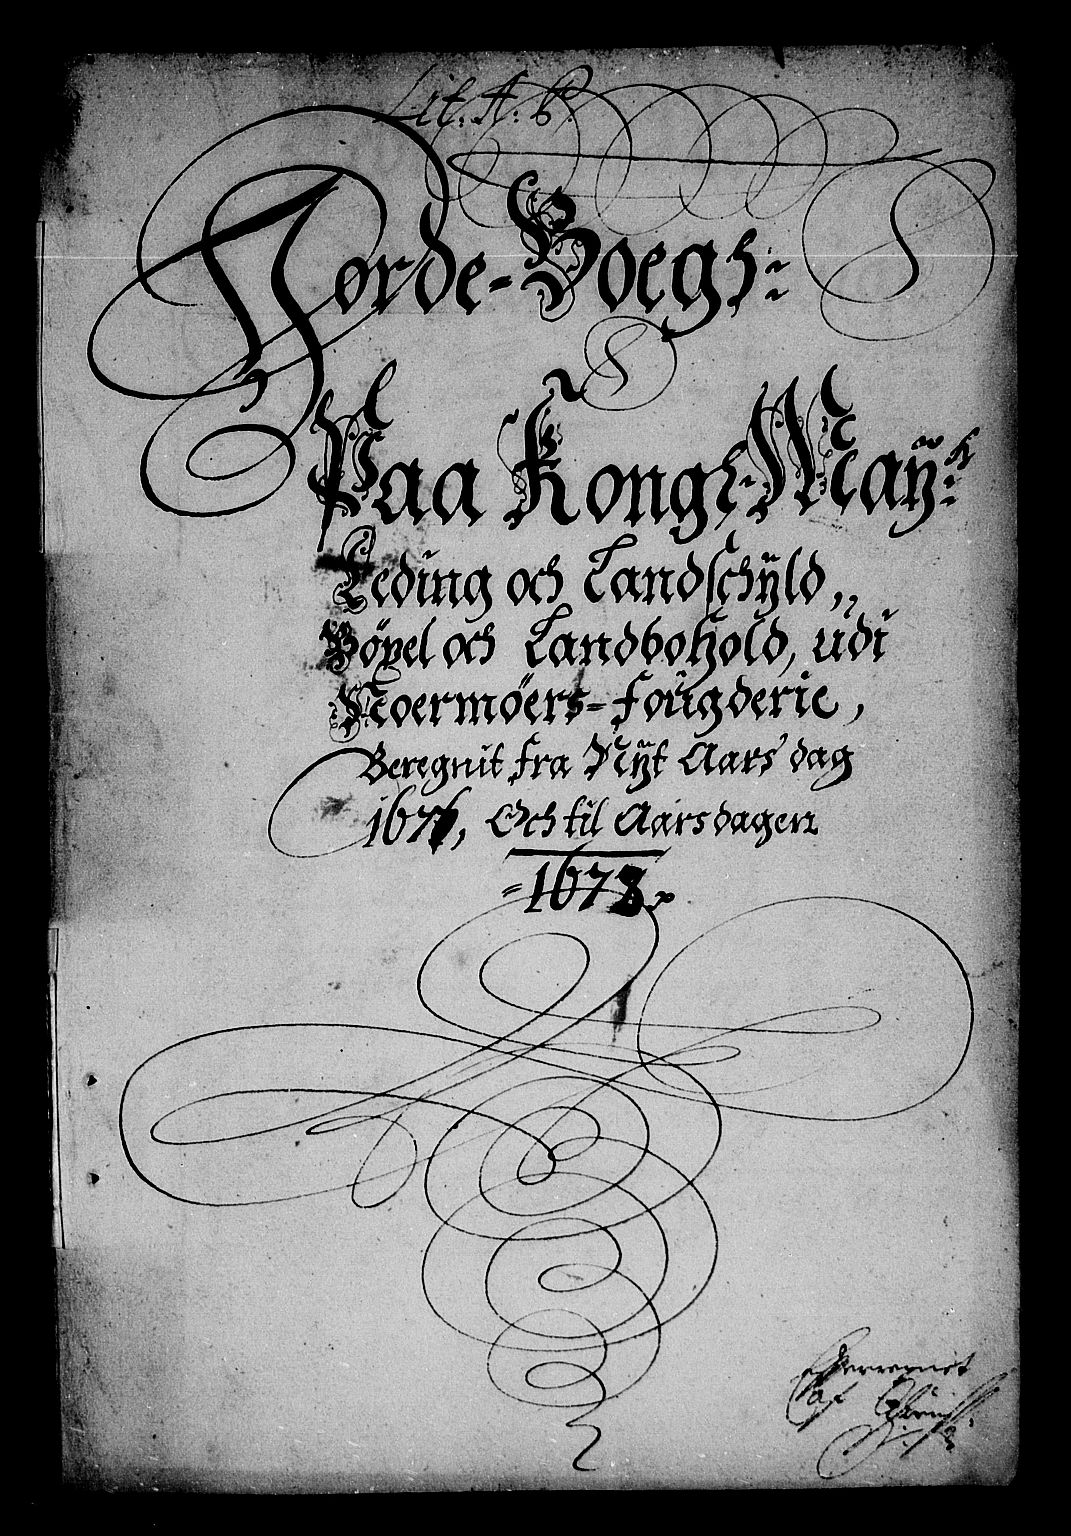 Lit: A: B.
Jorde-Boegs:
Paa Kongl: Maÿ:tt
Leding och Landschÿld,,
Böxel och Landbohold, udi
Noermöers-fougderie,
Beregnit fra Nÿt Aars dag
1671, Och til Aars dagen
1673.
af